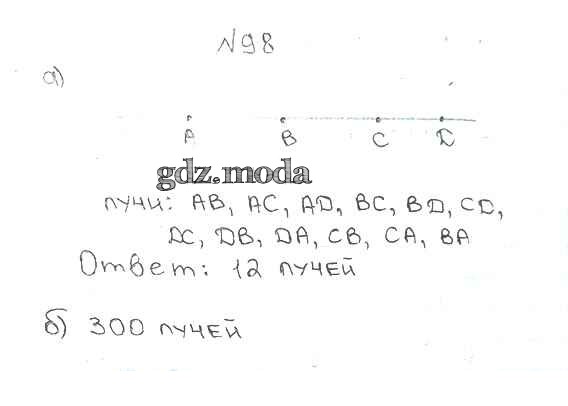 №98
а)
А В С D
gdz.moda
лучи: АВ, АС, АD, ВС, ВD, СD,
DC, DB, DA, CB, CA, BA
Ответ: 12 лучей
б) 300 лучей